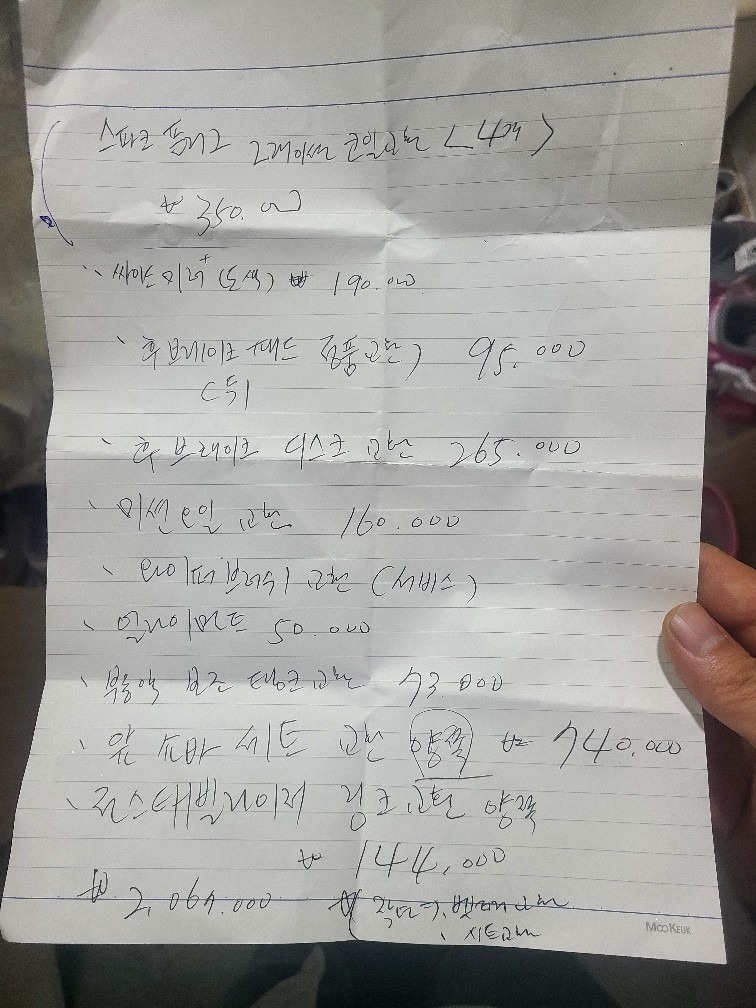 스파크 플러그 그개이션 코일교환 <4개>
₩ 350.000
싸이드미러 (도색) ₩ 190.000
후 브레이크 패드 정품교환) 95.000
후 브레이크 디스크 교환 265.000
미션오일 교환 160.000
와이퍼브러쉬 교환 (서비스)
얼라이먼트 50.000
부동액 보조 탱크교환 73000
앞 쇼바 세트 교환 양쪽 ₩ 740.000
전스태빌라이저 링크교환 양쪽
₩ 144,000
₩ 2,067.000
MOOKEUK